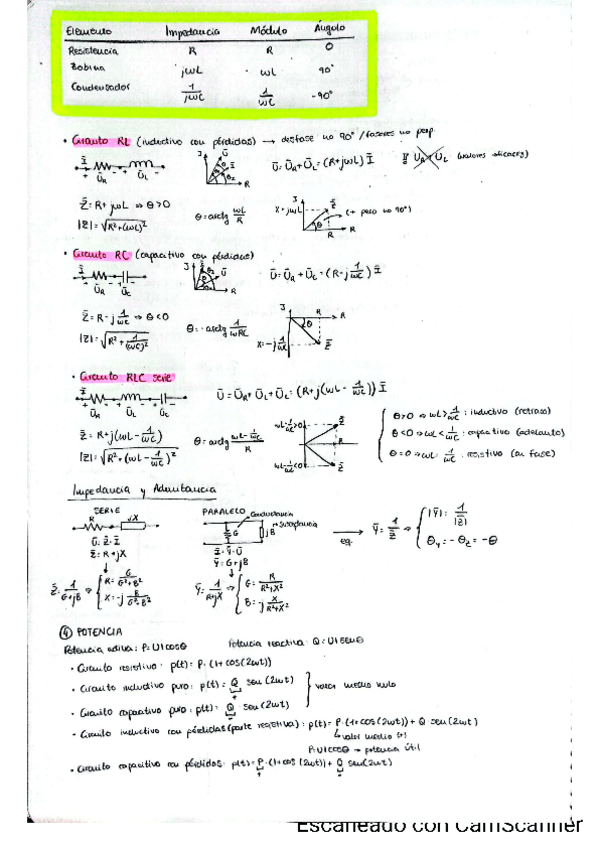 Elemento Impedancia Módulo Ángulo
Resistencia R R 0
Bobina jωL ωL 90°
Condensador 1/jωC 1/ωC -90°
• Circuito RL (inductivo con pérdidas) → desfase no 90° / fasores no perp.
Ī + ŪR - + ŪL - Ū = ŪR + ŪL = (R+jωL) Ī UR + UL (valores eficaces)
Z̄ = R + jωL ⇒ θ>0 θ = arctg ωL/R X = jωL (+ pero no 90°)
|Z| = √R²+(ωL)²
• Circuito RC (capacitivo con pérdidas)
Ī ŪR ŪC Ū = ŪR + ŪC = (R - j 1/ωC) Ī
Z̄ = R - j 1/ωC ⇒ θ<0 θ = - arctg 1/ωRC X = -j 1/ωC
|Z| = √R² + 1/(ωC)²
• Circuito RLC serie
Ī ŪR ŪL ŪC Ū = ŪR + ŪL + ŪC = (R+j(ωL - 1/ωC)) Ī
Z̄ = R+j(ωL - 1/ωC) θ = arctg (ωL - 1/ωC)/R ωL - 1/ωC >0
|Z| = √R² + (ωL - 1/ωC)² ωL - 1/ωC <0
θ>0 ⇒ ωL > 1/ωC : inductivo (retraso)
θ<0 ⇒ ωL < 1/ωC : capacitivo (adelanto)
θ=0 ⇒ ωL 1/ωC : resistivo (en fase)
Impedancia y Admitancia
SERIE PARALELO conductancia
R jX G jB susceptancia
Ū = Z̄·Ī Ī = Ȳ·Ū
Z̄ = R+jX Ȳ = G+jB
eq. Ȳ = 1/Z̄ ⇒ |Ȳ| = 1/|Z|
θY = -θZ = -θ
Z̄ = 1/G+jB ⇒ R = G/G²+B² Ȳ = 1/R+jX ⇒ G = R/R²+X²
X = -j B/G²+B² B = -j X/R²+X²
④ POTENCIA
Potencia activa: P = UI cosθ Potencia reactiva: Q = UI senθ
• Circuito resistivo: p(t) = P·(1+cos(2ωt))
• Circuito inductivo puro: p(t) = Q sen(2ωt)
+ valor medio nulo
• Circuito capacitivo puro: p(t) = Q · sen(2ωt)
-
• Circuito inductivo con pérdidas (parte resistiva): p(t) = P·(1+cos(2ωt)) + Q sen(2ωt)
↳ valor medio (+)
P=UI cosθ → potencia útil
• Circuito capacitivo con pérdidas: p(t) = P·(1+cos(2ωt)) + Q sen(2ωt)
+ -
Escaneado con CamScanner